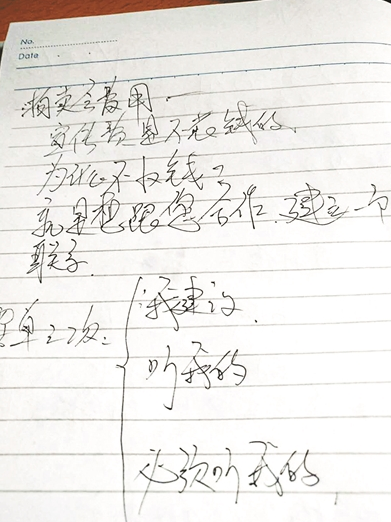 No.
Date
拍卖会费用.
宣传费是不收钱的
为什么不收钱?
就是想跟您合作.建立一个
联系.
单三次:
我建议.
听我的
必须听我的